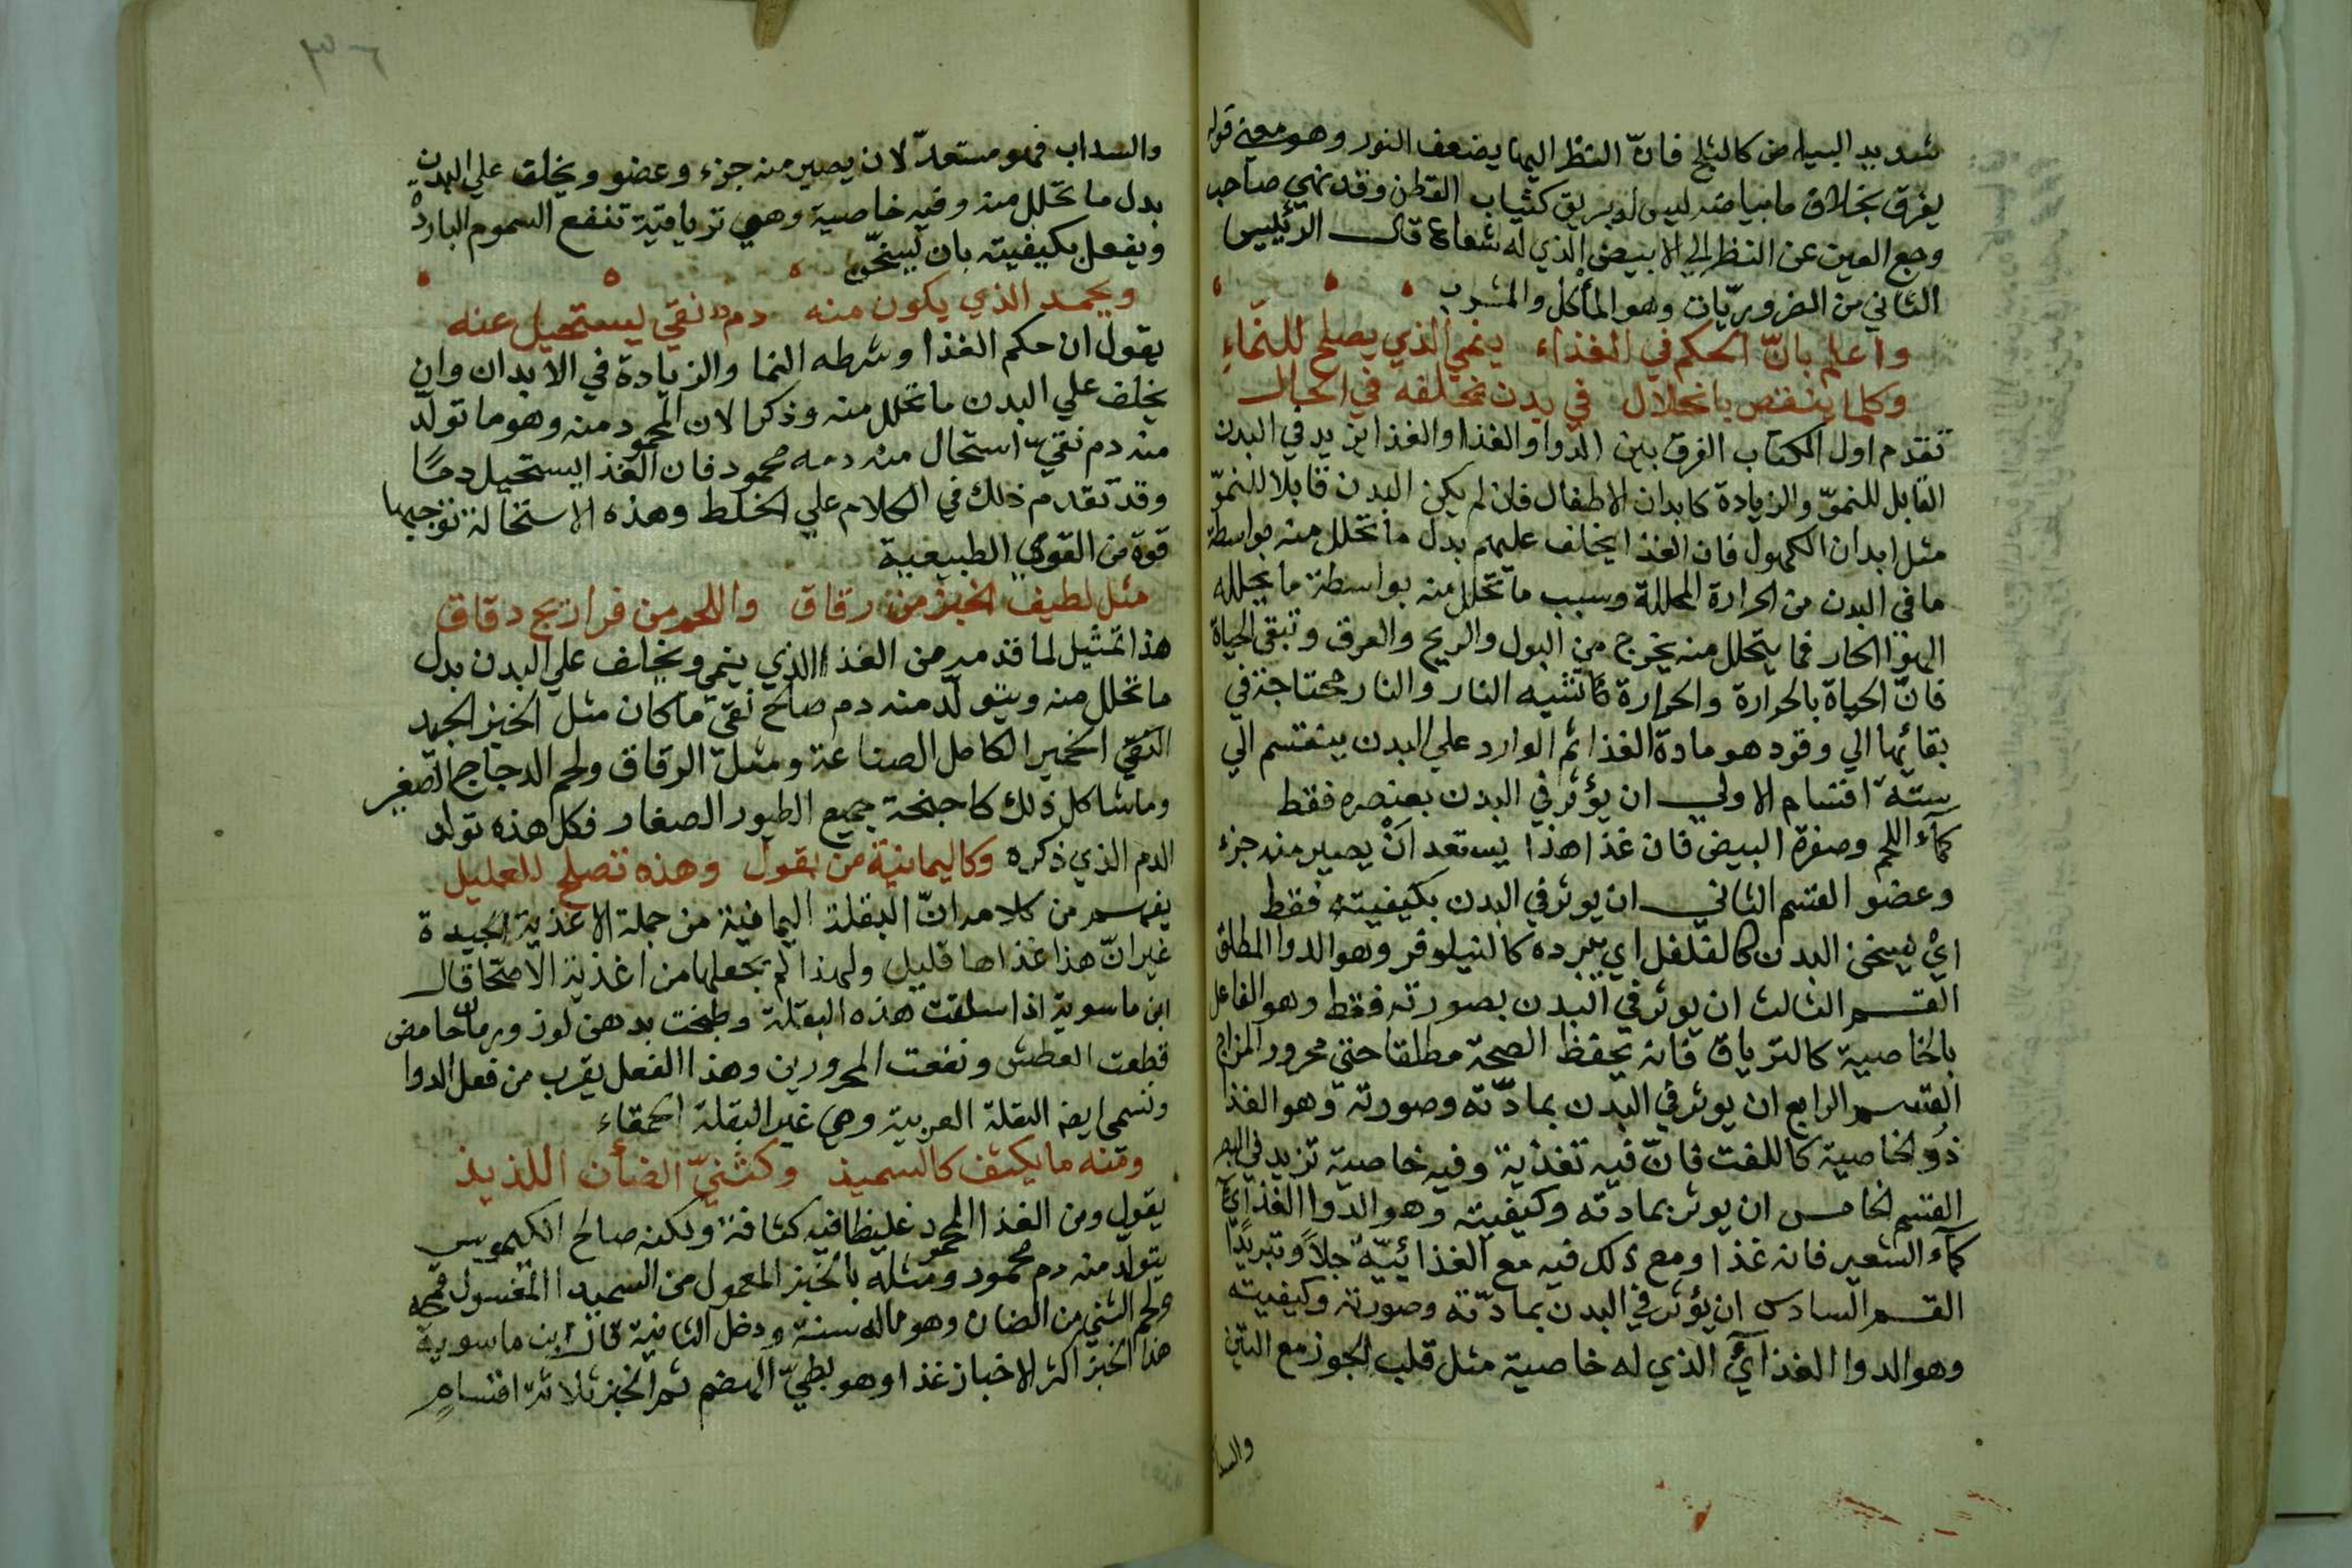 شديد البياض كالثلج فانّ النظر اليها يضعف النور وهو معني قوله
يفرق بخلاف ما بياضه ليس له بريق كثياب القطن وقد نهي صاحب
وجع العين عن النظر الي الابيض الذي له شعاع قال الرئيس
الثاني من الضروريّات وهو المأكل والمشرب
واعلم بانّ الحكم في الغذاء ينمي الذي يصلح للنّماءِ
وكلما ينقص بانحلال في بدن نخلفه في الحال
تقدم اول الكتاب الفرق بين الدوا والغذا والغذا يزيد في البدن
القابل للنموّ والزيادة كابدان الاطفال فان لم يكن البدن قابلا للنموّ
مثل ابدان الكهول فان الغذا يخلف عليهم بدل ما تحلل منه بواسطة
ما في البدن من الحرارة المحللة وسبب ما تحلل منه بواسطة ما يحلله
الهوا الحار فما يتحلل منه يخرج من البول والريح والعرق وتبقي الحياة
فانّ الحياة بالحرارة والحرارة كانشيه النار والنار محتاجة في
بقائها الي وقود هو مادة الغذا ثم الوارد علي البدن ينقسم الي
ستة اقسام الاولي ان يؤثر في البدن بعنصره فقط
كمآء اللحم وصفرة البيض فان غذا هذا يستعد انْ يصير منه جزء
وعضو القسم الثاني ان يوثر في البدن بكيفيته فقط
ايْ يسخن البدن كالفلفل اي يبرده كالنيلوفر وهو الدوا المطلق
القسم الثالث ان يوثر في البدن بصورته فقط وهو الفاعل
بالخاصية كالترياق فانه يحفظ الصحة مطلقا حتي محرور المزاج
القسم الرابع ان يوثر في البدن بمادّته وصورته وهو الغذا
ذو الخاصية كاللفت فانّ فيه تغذية وفيه خاصية تزيد في البصر
القسم الخامس ان يوثر بمادته وكيفيته وهو الدوا الغذايّ
كمآء الشعير فانه غذا ومع ذلك فيه مع الغذائيّة جلاً وتبريدًا
القسم السادس ان يؤثر في البدن بمادّته وصورته وكيفيته
وهو الدوا الغذآئي الذي له خاصية مثل قلب الجوز مع التين
والسداب
والسداب فهو مستعدّ لان يصير منه جزء وعضو ويخلف علي البدن
بدل ما تحلل منه وفيه خاصية وهي ترياقية تنفع السموم الباردة
ويفعل بكيفيته بان يسخّن
ويحمد الذي يكون منه دم نقي يستحيل عنه
يقول ان حكم الغذا وشرطه النما والزيادة في الابدان وان
يخلف علي البدن ما تحلل منه وذكر الان المحمود منه وهو ما تولد
منه دم نقيّ استحال منه دمه محمود فان الغذا يستحيل دمًا
وقد تقدم ذلك في الكلام علي الخلط وهذه الاستحالة توجبها
قوة من القوي الطبيعية
مثل لطيف الخبز من رقاق واللحم من فراريج دقاق
هذا تمثيل لما قدمه من الغذا الذي ينمي ويخلف علي البدن بدل
ما تحلل منه ويتولّد منه دم صالح نقيّ ما كان مثل الخبز الجيد
النقيّ الخمير الكامل الصناعة ومثل الرقاق ولحم الدجاج الصغير
وما شاكل ذلك كاجنحة جميع الطيور الصغار فكل هذه تولد
الدم الذي ذكره وكاليمانية من بقول وهذه تصلح للعليل
يفهم من كلامه انّ البقلة اليمانية من جملة الاغذية الجيدة
غير انّ هذا غذاها قليل ولهذا لم يجعلها من اغذية الاصحا قال
ابن ماسوية اذا سلقت هذه البقلة وطبخت بدهن لوز ورمان حامض
قطعت العطش ونفعت المحرورين وهذا الفعل يقرب من فعل الدوا
وتسمي ايضا البقلة العربية وهي غير البقلة الحمقاء
ومنه ما يكثف كالسميذ وكثنيّ الضأن اللذيذ
يقول ومن الغذا المحمود غليظا فيه كثافة ولكنه صالح الكيموس
يتولّد منه دم محمود ومثله بالخبز المعمول من السميد المغسول قمحه
ولحم الثني من الضان وهو ماله سنة ودخل الثانية قال ابن ماسوية
هذا الخبز اكثر الاخباز غذا وهو بطيّ الهضم ثم الخبز ثلاثة اقسامٍ